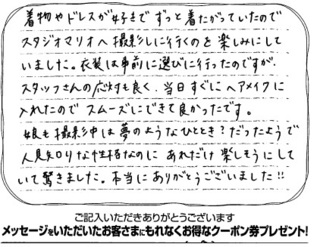 着物やドレスが好きでずっと着たがっていたので
スタジオマリオへ撮影しに行くのを楽しみにして
いました。衣装は事前に選びに行ったのですが、
スタッフさんの応対も良く、当日すぐにヘアメイクに
入れたのでスムーズにできて良かったです。
娘も撮影中は夢のようなひととき？だったようで
人見知りな性格なのにあれだけ楽しそうにして
いて驚きました。本当にありがとうございました!!
ご記入いただきありがとうございます
メッセージをいただいたお客さまにもれなくお得なクーポン券プレゼント!